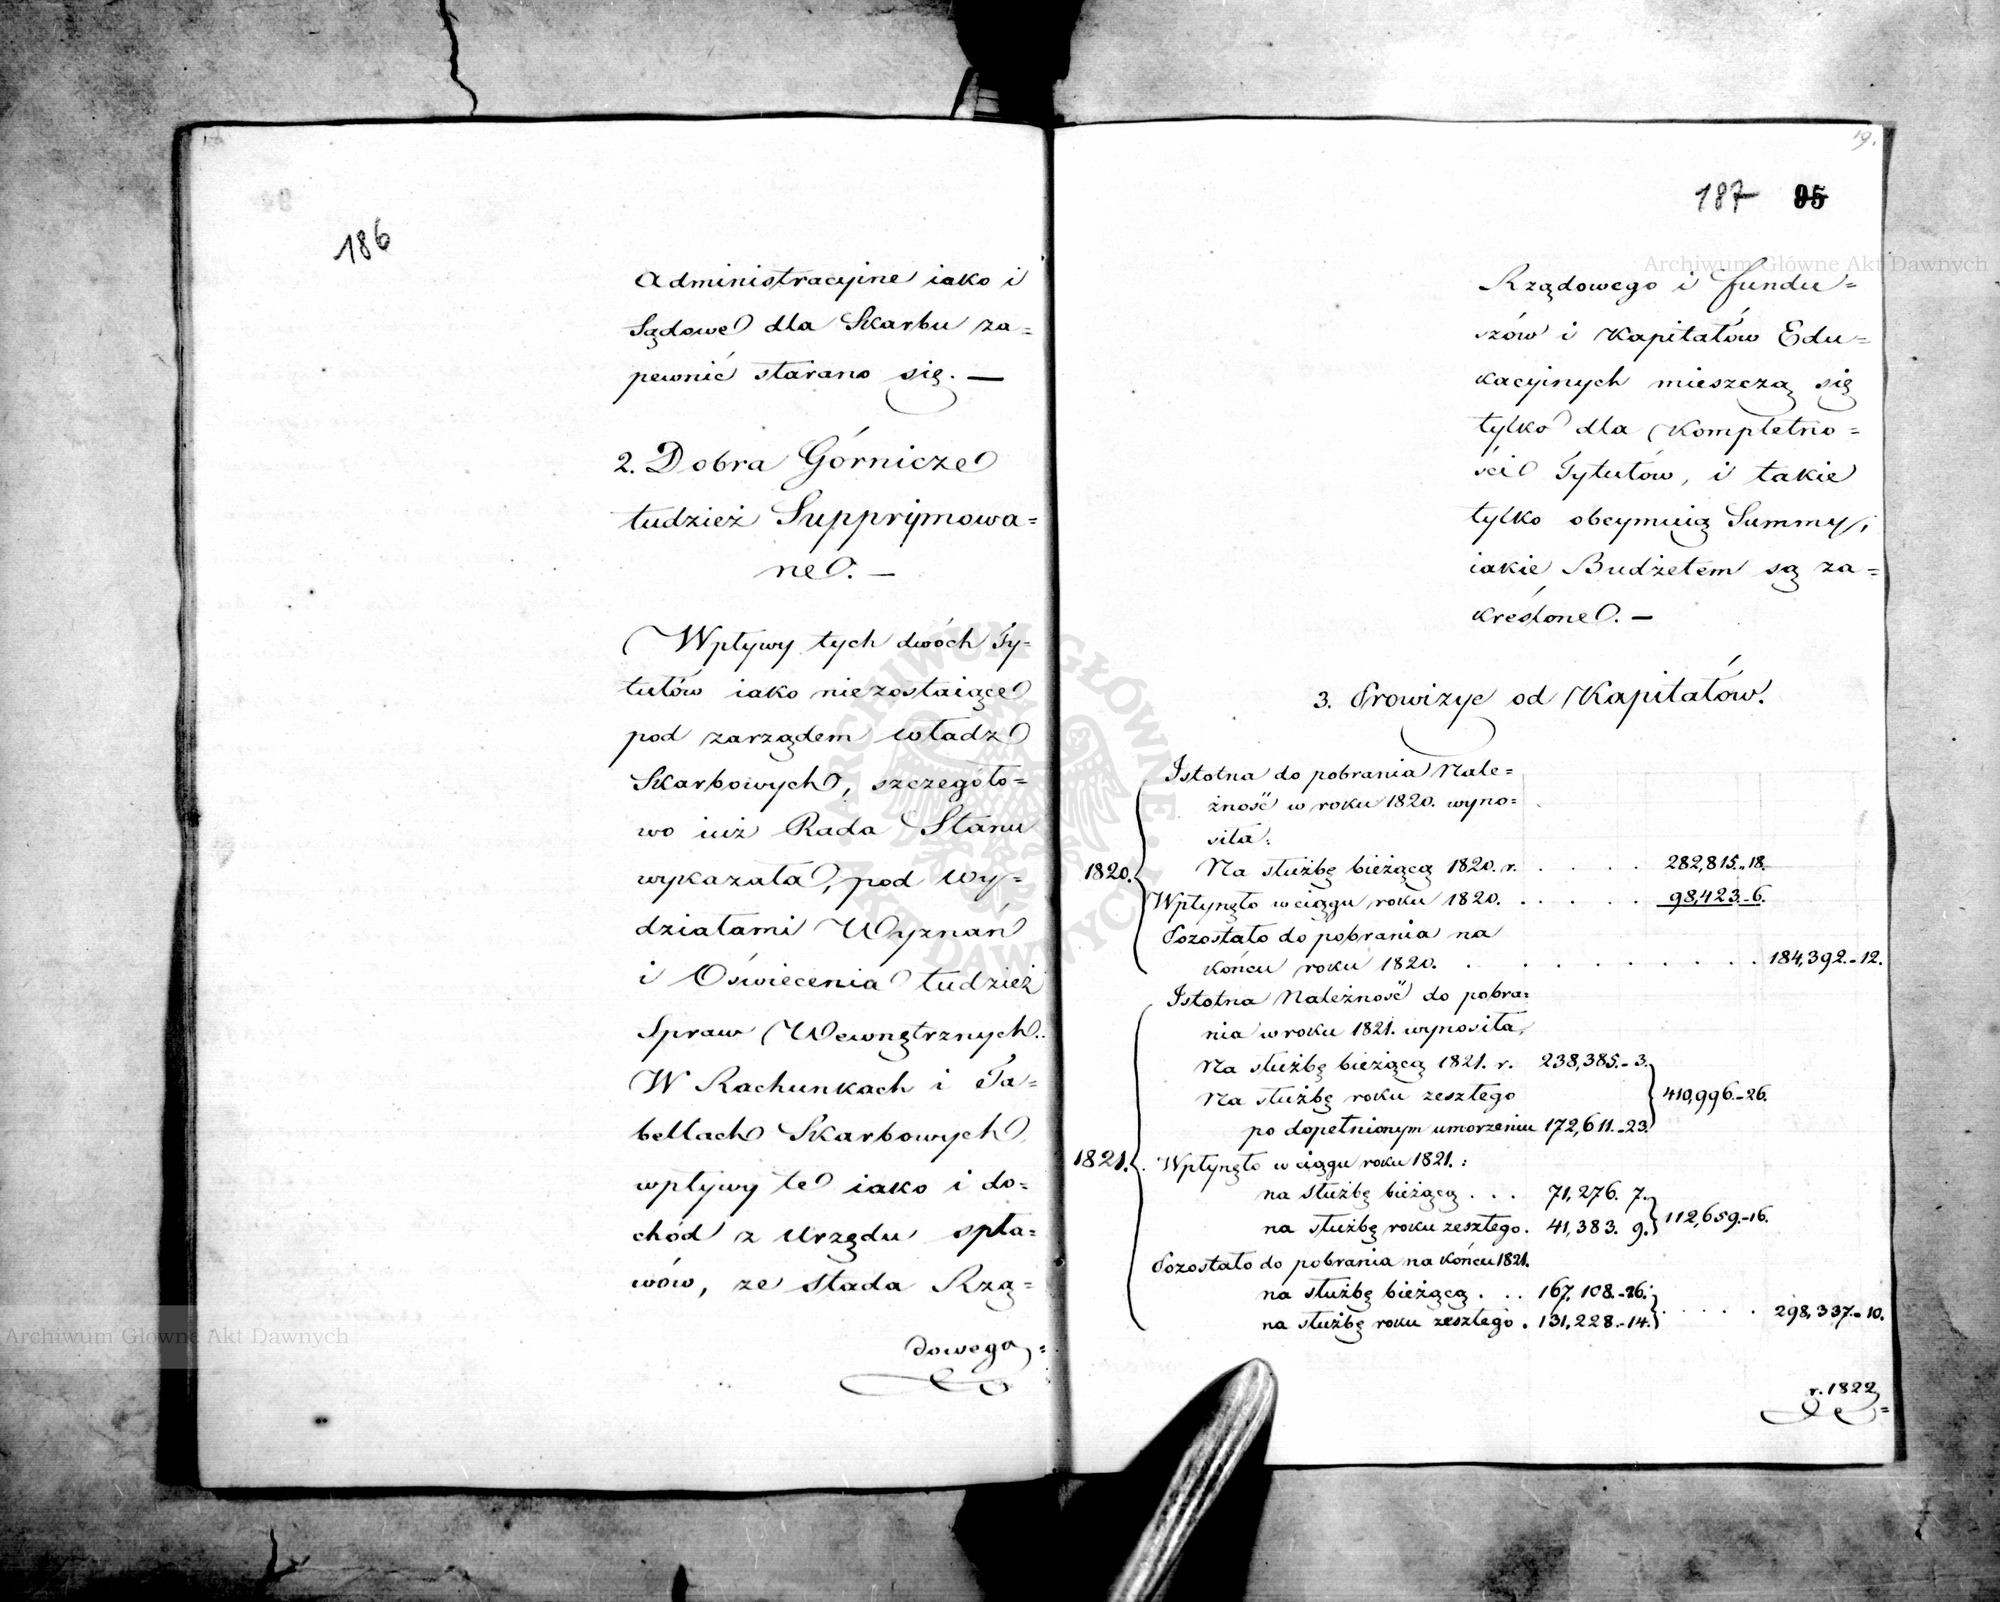 186
Administracyine iako i
Sądowe dla Skarbu za=
pewnić starano się. —
2. Dobra Górnicze
tudzież Supprymowa=
ne. —
Wpływy tych dwóch Ty=
tułów iako niezostaiące
pod zarządem władz
Skarbowych, szczegóło=
wo iuż Rada Stanu
wykazała, pod Wy=
działami Wyznań
i Oświecenia tudzież
Spraw Wewnętrznych.
W Rachunkach i Ta=
bellach Skarbowych,
wpływy te iako i do=
chód z Urzędu spła=
wów, ze Stada Rzą=
dowego=
19.
187 95
Rządowego i fundu=
szów i Kapitałów Edu=
kacyinych mieszczą się
tylko dla Kompletno=
ści Tytułów, i takie
tylko obeymuią Summy,
iakie Budżetem są za=
kreślone. —
3. Prowizye od Kapitałów.
Istotna do pobrania Nale=
żność w roku 1820. wyno=
siła:
1820. Na służbę bieżącą 1820. r. . . . . 282,815.-18.
Wpłynęło w ciągu roku 1820. . . . . . 98,423.-6.
Pozostało do pobrania na
końcu roku 1820. . . . . . . . . . 184,392.-12.
Istotna Należność do pobra=
nia w roku 1821. wynosiła,
Na służbę bieżącą 1821. r. 238,385.-3.
Na służbę roku zeszłego 410,996.-26.
po dopełnionym umorzeniu 172,611.-23.
1821. Wpłynęło w ciągu roku 1821. :
na służbę bieżącą . . . 71,276. 7.
na służbę roku zeszłego. 41,383. 9. 112,659.-16.
Pozostało do pobrania na końcu 1821.
na służbę bieżącą . . . 167,108.-26.
na służbę roku zeszłego . 131,228.-14. . . . . . 298,337.-10.
r. 1822=
Archiwum Główne Akt Dawnych
Archiwum Główne Akt Dawnych
ARCHIWUM GŁÓWNE AKT DAWNYCH